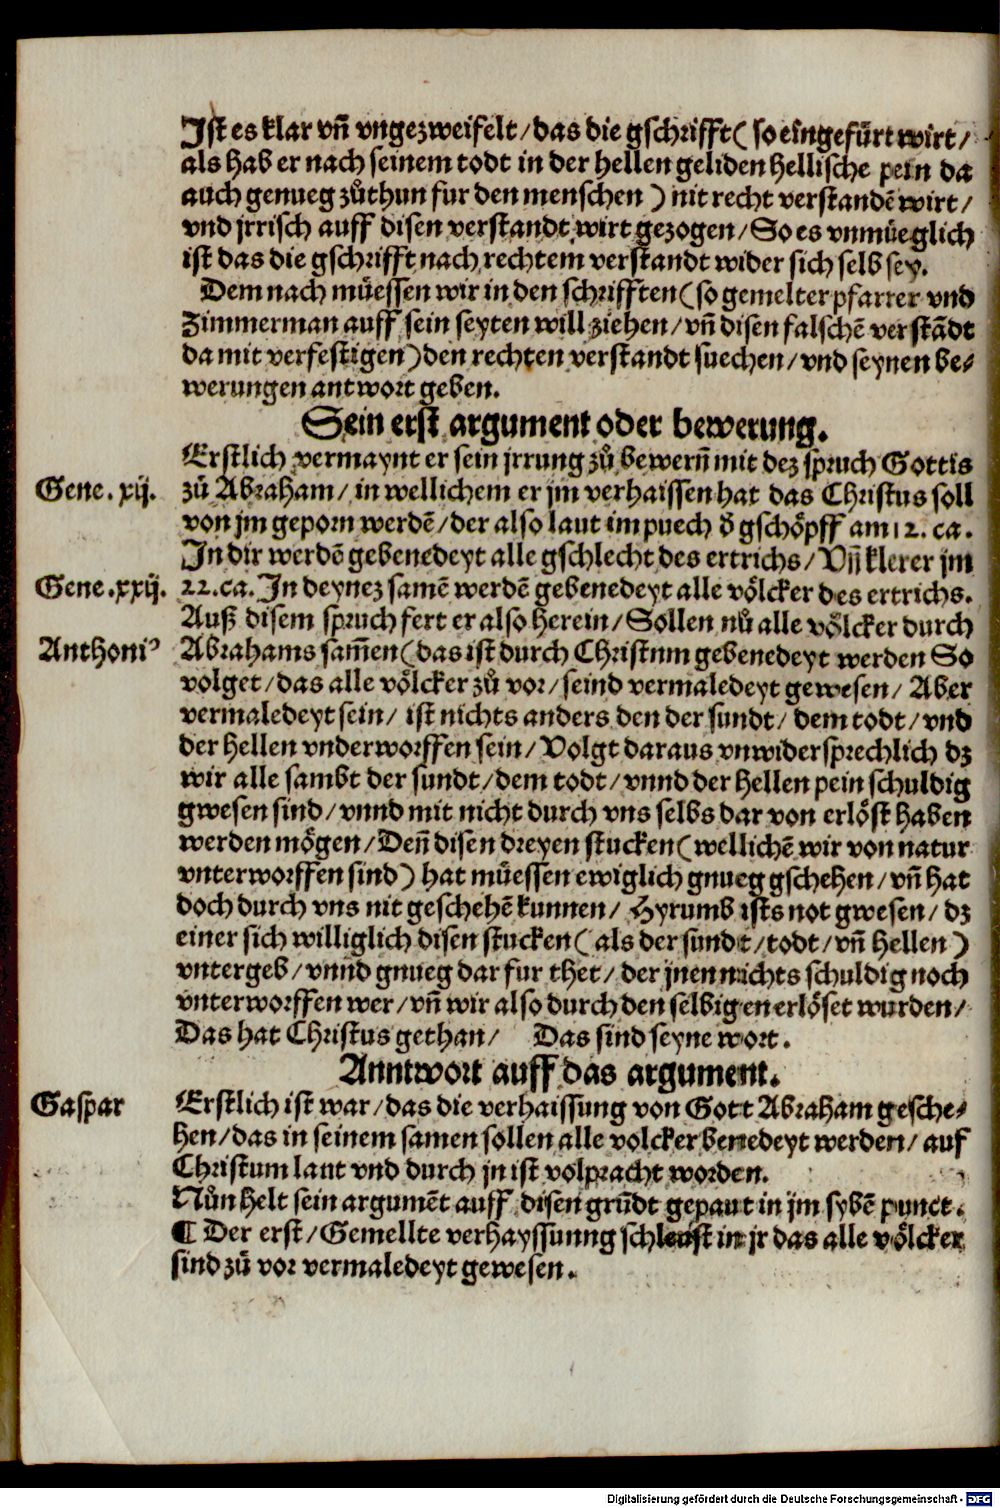 Jst es klar vn̄ vngezweifelt/das die gschrifft( so eingefürt wirt/
als hab er nach seinem todt in der hellen geliden hellische pein da
auch genueg zůthun fur den menschen ) nit recht verstandē wirt/
vnd jrrisch auff disen verstandt wirt gezogen/So es vnmüeglich
ist das die gschrifft nach rechtem verstandt wider sich selb sey.
Dem nach müessen wir in den schrifften(so gemelter pfarrer vnd
Zimmerman auff sein seyten will ziehen/vn̄ disen falschē verstādt
da mit verfestigen)den rechten verstandt suechen/vnd seynen be⸗
werungen antwort geben.
Sein erst argument oder bewerung.
Erstlich vermaynt er sein jrrung zů bewern̄ mit dez spruch Gottis
Gene.xij. zů Abraham/in wellichem er jm verhaissen hat das Christus soll
von jm geporn werdē/der also laut im puech d̓ gschöpff am 12.ca.
In dir werdē gebenedeyt alle gschlecht des ertrichs/Vn̄ klerer jm
Gene.xxij. 22.ca.In deynez samē werdē gebenedeyt alle völcker des ertrichs.
Auß disem spruch fert er also herein/Sollen nů alle völcker durch
Anthoniꝰ Abrahams sam̄en(das ist durch Christum gebenedeyt werden So
volget/das alle völcker zů vor/seind vermaledeyt gewesen/Aber
vermaledeyt sein/ist nichts anders den der sundt/dem todt/vnd
der hellen vnderworffen sein/Volgt daraus vnwidersprechlich dz
wir alle sambt der sundt/dem todt/vnnd der hellen pein schuldig
gwesen sind/vnnd mit nicht durch vns selbs dar von erlöst haben
werden mögen/Den̄ disen dreyen stucken(wellichē wir von natur
vnterworffen sind)hat müessen ewiglich gnueg gschehen/vn̄ hat
doch durch vns nit geschehē kunnen/Hyrumb ists not gwesen/dz
einer sich williglich disen stucken(als der sundt/todt/vn̄ hellen)
vntergeb/vnnd gnueg dar fur thet/der jnen nichts schuldig noch
vnterworffen wer/vn̄ wir also durch den selbigen erlöset wurden/
Das hat Christus gethan/ Das sind seyne wort.
Anntwort auff das argument.
Gaspar Erstlich ist war/das die verhaissung von Gott Abraham gesche⸗
hen/das in seinem samen sollen alle volcker benedeyt werden/auf
Christum laut vnd durch jn ist volpracht worden.
Nůn helt sein argumēt auff disen grūdt gepaut in jm sybē punct.
¶ Der erst/Gemellte verhayssunng schleust in jr das alle völcker
sind zů vor vermaledeyt gewesen.
Digitalisierung gefördert durch die Deutsche Forschungsgemeinschaft - DFG